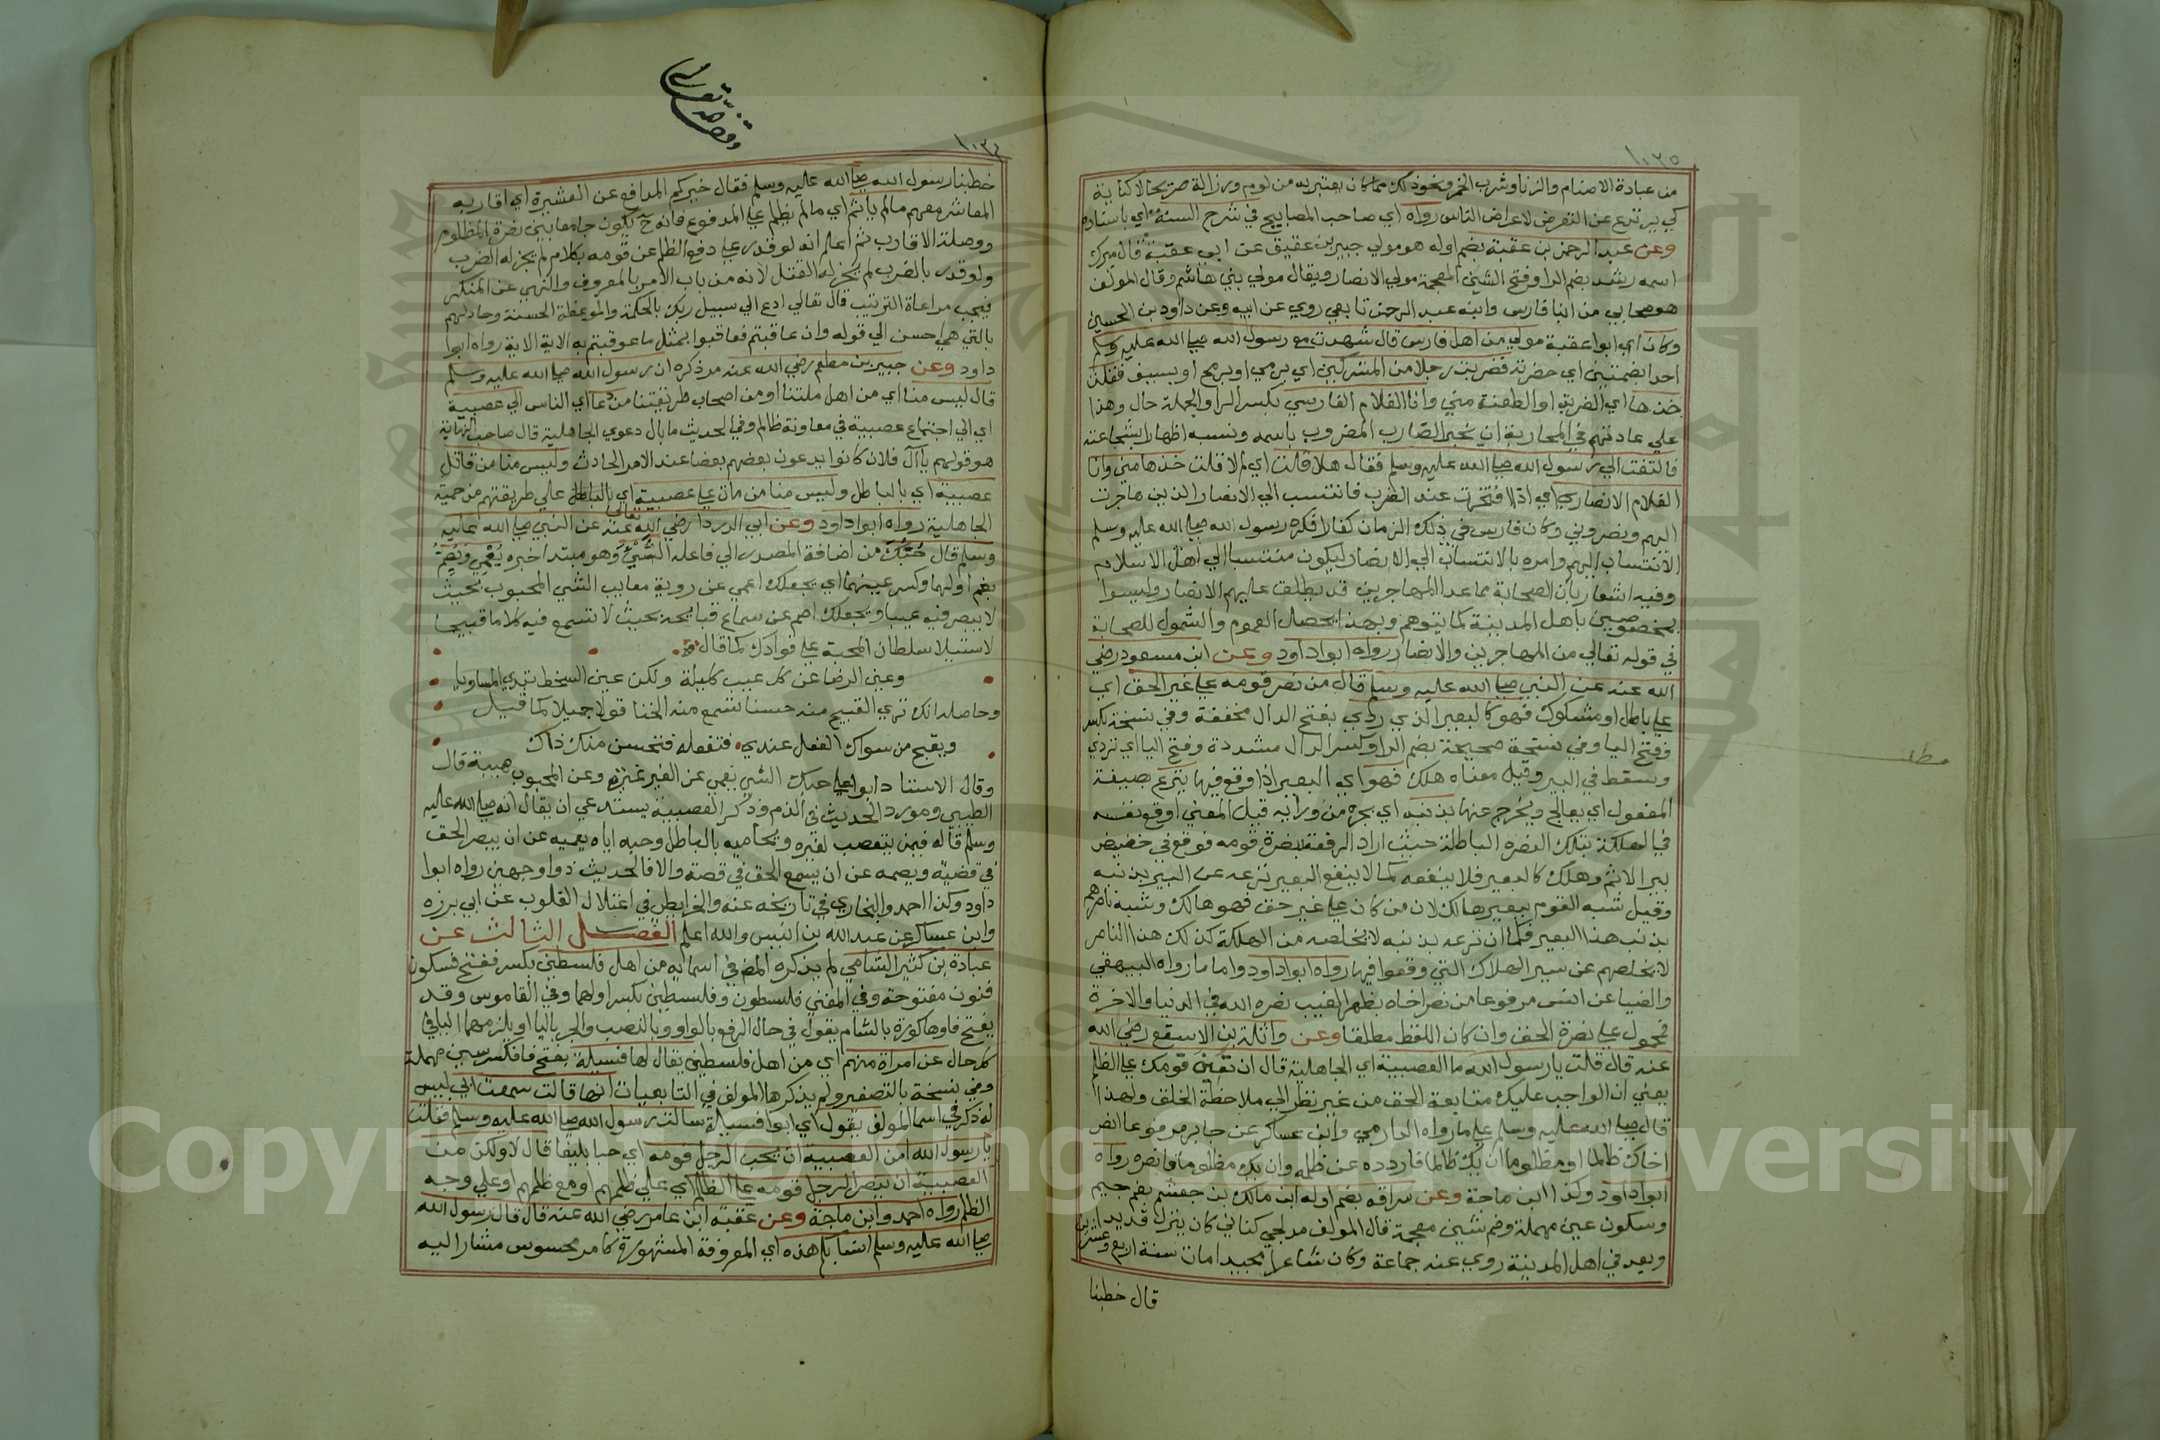 ١٠٢٥
من عبادة الاصنام والزنا وشرب الخمر ونحو ذلك مما كان يعتبر به من لوم ورزالة صريحا لا كناية
كي يرتدع عن التعرض لاعراض الناس رواه اي صاحب المصابيح في شرح السنة اي باسناده
وعن عبد الرحمن بن عقبة بضم اوله هو مولي جبير بن عقيق عن ابي عقبة قال ميرك
اسمه رشيد بضم الرا وفتح الشين المعجمة مولي الانصار ويقال مولي بني هاشم وقال المولف
هو صحابي من ابنا فارس وابنه عبد الرحمن تابعي روي عن ابيه وعن داود بن الحسين
وكان اي ابوا عقبة مولي من اهل فارس قال شهدت مع رسول الله صلي الله عليه وسلم
احدا بضمتين اي حضرته فضربت رجلا من المشركين اي برمي او برمح او بسيف فقلت
خذها اي الضربة او الطعنة مني وانا الغلام الفارسي بكسر الرا والجملة حال وهذا
علي عادتهم في المحاربة ان يخبر الضارب المضروب باسمه ونسبه اظهارا لشجاعته
فالتفت الي رسول الله صلي الله عليه وسلم فقال هلا قلت اي لم لا قلت خذها مني وانا
الغلام الانصاري اي اذا افتخرت عند الضرب فانتسب الي الانصار الذين هاجرت
اليهم ونصروني وكان فارس في ذلك الزمان كفارا فكره رسول الله صلي الله عليه وسلم
الانتساب اليهم وامره بالانتساب الي الانصار ليكون منتسبا الي اهل الاسلام
وفيه اشعار بان الصحابة ما عدا المهاجرين قد يطلق عليهم الانصار وليسوا
بمخصوصين باهل المدينة كما يتوهم وبهذا يحصل العموم والشمول للصحابة
في قوله تعالي من المهاجرين والانصار رواه ابوا داود وعن ابن مسعود رضي
الله عنه عن النبي صلي الله عليه وسلم قال من نصر قومه علي غير الحق اي
علي باطل او مشكوك فهو كالبعير الذي ردي بفتح الدال مخففة وفي نسخة بكسر
وفتح اليا وفي نسخة صحيحة بضم الرا وكسر الدال مشددة وفتح اليا اي تردي
وسقط في البير وقيل معناه هلك فهو اي البعير اذا وقع فيها ينزع بصيغة
المفعول اي يعالج ويخرج عنها بذنبه اي بجره من ورايه قيل المعني اوقع نفسه
في الهلكة بتلك النصره الباطلة حيث اراد الرفعة بنصرة قومه فوقع في حضيض
بير الاثم وهلك كالبعير فلا ينفعه كما لا ينفع البعير نزعه عن البير بذنبه
وقيل شبه القوم ببعير هالك لان من كان علي غير حق فهو هالك وشبه ناصرهم
بذنب هذا البعير فكما ان نزعه بذنبه لا يخلصه من الهلكة كذلك هذا الناصر
لا يخلصهم عن بير الهلاك التي وقعوا فيها رواه ابوا داود واما ما رواه البيهقي
والضيا عن انس مرفوعا من نصر اخاه بظهر الغيب نصره الله في الدنيا والاخرة
فمحمول علي نصرة الحق وان كان اللفظ مطلقا وعن واثلة بن الاسقع رضي الله
عنه قال قلت يا رسول الله ما العصبية اي الجاهلية قال ان تعين قومك علي الظلم
يعني ان الواجب عليك متابعة الحق من غير نظر الي ملاحظة الخلق ولهذا
قال صلي الله عليه وسلم علي ما رواه الدارمي وابن عساكر عن جابر مرفوعا انصر
اخاك ظالما او مظلوما ان يك ظالما فاردده عن ظلمه وان يك مظلوما فانصره رواه
ابوا داود ولذا ابن ماجة وعن سراقه بضم اوله ابن مالك بن جعشم بضم جيم
وسكون عين مهملة وضم شين معجمة قال المولف مدلجي كناني كان ينزل قديدا
ويعد في اهل المدينة روي عنه جماعة وكان شاعرا مجيدا مات سنة اربع وعشرين
قال خطبنا
وقف لله تعالى
خطبنا رسول الله صلي الله عليه وسلم فقال خيركم المدافع عن العشيرة اي اقاربه
المعاشر معهم مالم ياثم اي مالم يظلم علي المدفوع فانه ح يكون جامعا بين نصرة المظلوم
ووصلة الاقارب ثم اعلم انه لو قدر علي دفع الظلم عن قومه بكلام لم يجز له الضرب
ولو قدر بالضرب لم يجز له القتل لانه من باب الامر بالمعروف والنهي عن المنكر
فيجب مراعاة الترتيب قال تعالي ادع الي سبيل ربك بالحكمة والموعظة الحسنة وجادلهم
بالتي هي احسن الي قوله وان عاقبتم فعاقبوا بمثل ما عوقبتم به الاية الاية رواه ابوا
داود وعن جبير بن مطعم رضي الله عنه مر ذكره ان رسول الله صلي الله عليه وسلم
قال ليس منا اي من اهل ملتنا او من اصحاب طريقتنا من دعا اي الناس الي عصبية
اي الي اجتماع عصبية في معاونة ظالم وفي الحديث ما بال دعوي الجاهلية قال صاحب النهاية
هو قولهم يا آل فلان كانوا يدعون بعضهم بعضا عند الامر الحادث وليس منا من قاتل
عصبية اي بالباطل وليس منا من مات علي عصبية اي بالباطل علي طريقتهم من حمية
الجاهلية رواه ابوا داود وعن ابي الدردا رضي الله تعالى عنه عن النبي صلي الله عليه
وسلم قال حُبُّكَ من اضافة المصدر الي فاعله الشَّيْءَ وهو مبتدا خبره يُعْمِي وَيُصِمُّ
بضم اولهما وكسر عينهما اي يجعلك اعمي عن روية معايب الشي المحبوب بحيث
لا يبصر فيه عيبا ويجعلك اصم عن سماع قبايحه بحيث لا تسمع فيه كلاما قبيحا
لاستيلا سلطان المحبة علي فوادك كما قال
وعين الرضا عن كل عيب كليلة ولكن عين السخط تبدي المساويا
وحاصله انك تري القبيح منه حسنا تسمع منه الخنا قولا جميلا كما قيل
ويقبح من سواك الفعل عندي فتفعله فتحسن منك ذاك
وقال الاستاد ابوا علي حبك الشي يعمي عن الغير غيرة وعن المحبوب هيبة قال
الطيبي ومورد الحديث في الذم وذكر العصبية يستدعي ان يقال انه صلي الله عليه
وسلم قاله فيمن يتعصب لغيره ويحاميه بالباطل وحبه اياه يعميه عن ان يبصر الحق
في قضيّة ويصمه عن ان يسمع الحق في قصة والا فالحديث ذوا وجهين رواه ابوا
داود وكذا احمد والبخاري في تاريخه عنه والخرايطي في اعتلال القلوب عن ابي برزه
وابن عساكر عن عبد الله بن انيس والله اعلم الفصل الثالث عن
عبادة بن كثير الشامي لم يذكره المص في اسمايه من اهل فلسطين بكسر ففتح فسكون
فنون مفتوحة وفي المغني فلسطون وفلسطين بكسر اولهما وفي القاموس وقد
يفتح فاوها كورة بالشام يقول في حال الرفع بالواو وبالنصب والجر باليا او يلزمهما اليا في
كل حال عن امراة منهم اي من اهل فلسطين يقال لها فسيلة بفتح فا فكسر سين مهملة
وفي نسخة بالتصغير ولم يذكرها المولف في التابعيات انها قالت سمعت ابي ليس
له ذكر في اسما المولف يقول اي ابوا فسيلة سالت رسول الله صلي الله عليه وسلم فقلت
يا رسول الله امن العصبية ان يحب الرجل قومه اي حبا بليغا قال لا ولكن من
العصبية ان ينصر الرجل قومه علي الظلم اي علي ظلمهم او مع ظلمهم او علي وجه
الظلم رواه احمد وابن ماجة وعن عقبة ابن عامر رضي الله عنه قال قال رسول الله
صلي الله عليه وسلم انسابكم هذه اي المعروفة المشهورة كامر محسوس مشار اليه
Copyright © King Saud University